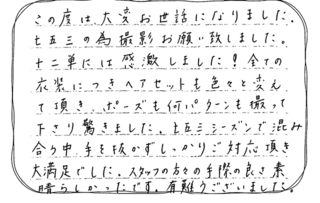 この度は大変お世話になりました。
七五三の為撮影お願い致しました。
十二単には感激しました!全ての
衣装につきヘアセットも色々と変え
て頂き、ポーズも何パターンも撮って
下さり驚きました。七五三シーズンで混み
合う中手を抜かずしっかりご対応頂き
大満足でした。スタッフの方々の手際の良さ素
晴らしかったです。有難うございました。